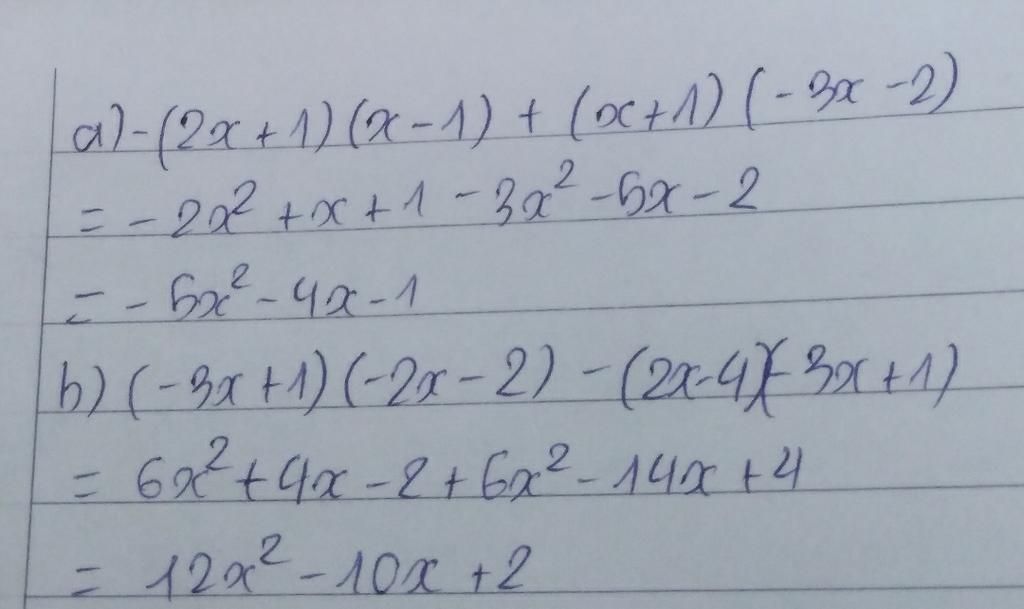 a) -(2x+1)(x-1) + (x+1)(-3x-2)
= -2x² + x + 1 - 3x² - 5x - 2
= -5x² - 4x - 1
b) (-3x+1)(-2x-2) - (2x-4)(-3x+1)
= 6x² + 4x - 2 + 6x² - 14x + 4
= 12x² - 10x + 2